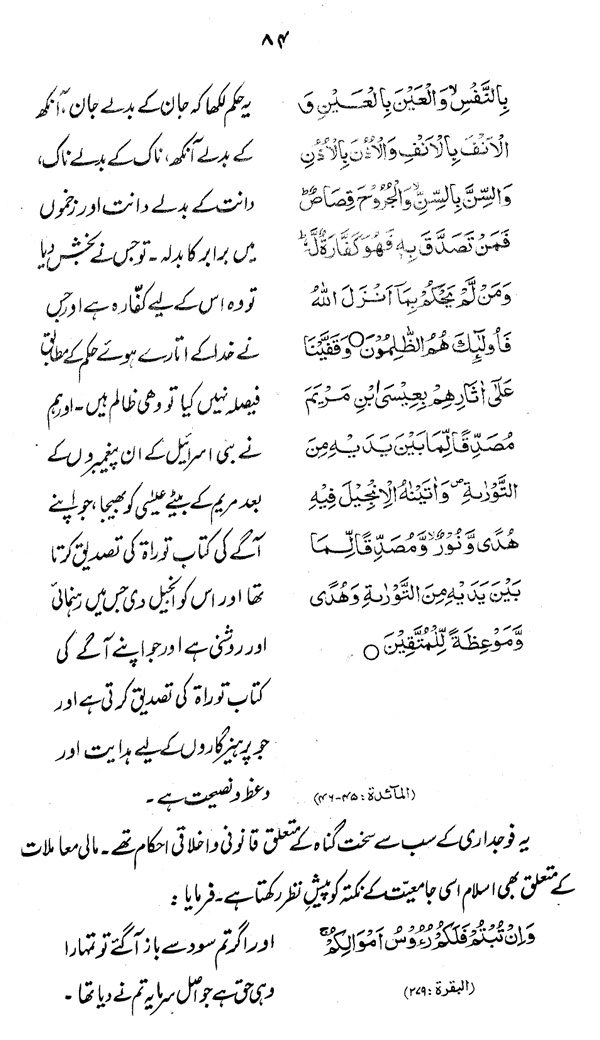 ۸۴
بِالنَّفْسِ وَالْعَيْنَ بِالْعَيْنِ وَ
الْاَنْفَ بِالْاَنْفِ وَالْاُذُنَ بِالْاُذُنِ
وَالسِّنَّ بِالسِّنِّ وَالْجُرُوْحَ قِصَاصٌ ط
فَمَنْ تَصَدَّقَ بِهٖ فَهُوَ كَفَّارَةٌ لَّهٗ ط
وَمَنْ لَّمْ يَحْكُمْ بِمَآ اَنْزَلَ اللّٰهُ
فَاُولٰٓئِكَ هُمُ الظّٰلِمُوْنَ ○ وَقَفَّيْنَا
عَلٰٓى اٰثَارِهِمْ بِعِيْسَى ابْنِ مَرْيَمَ
مُصَدِّقًا لِّمَا بَيْنَ يَدَيْهِ مِنَ
التَّوْرٰىةِ ص وَاٰتَيْنٰهُ الْاِنْجِيْلَ فِيْهِ
هُدًى وَّنُوْرٌ لا وَّمُصَدِّقًا لِّمَا
بَيْنَ يَدَيْهِ مِنَ التَّوْرٰىةِ وَهُدًى
وَّمَوْعِظَةً لِّلْمُتَّقِيْنَ ○
(المآئدۃ : ۴۵-۴۶)
یہ حکم لکھا کہ جان کے بدلے جان، آنکھ
کے بدلے آنکھ، ناک کے بدلے ناک،
دانت کے بدلے دانت اور زخموں
میں برابر کا بدلہ ۔ تو جس نے بخش دیا
تو وہ اس کے لیے کفّارہ ہے اور جس
نے خدا کے اتارے ہوئے حکم کے مطابق
فیصلہ نہیں کیا تو وہی ظالم ہیں ۔ اور ہم
نے بنی اسرائیل کے ان پیغمبروں کے
بعد مریم کے بیٹے عیسٰی کو بھیجا، جو اپنے
آگے کی کتاب توراۃ کی تصدیق کرتا
تھا اور اس کو انجیل دی جس میں رہنمائی
اور روشنی ہے اور جو اپنے آگے کی
کتاب توراۃ کی تصدیق کرتی ہے اور
جو پرہیزگاروں کے لیے ہدایت اور
وعظ و نصیحت ہے ۔
یہ فوجداری کے سب سے سخت گناہ کے متعلق قانونی و اخلاقی احکام تھے ۔ مالی معاملات
کے متعلق بھی اسلام اسی جامعیّت کے نکتہ کو پیشِ نظر رکھتا ہے ۔ فرمایا :
وَاِنْ تُبْتُمْ فَلَكُمْ رُءُوْسُ اَمْوَالِكُمْ ج
(البقرۃ : ۲۷۹)
اور اگر تم سود سے باز آگئے تو تمہارا
وہی حق ہے جو اصل سرمایہ تم نے دیا تھا ۔